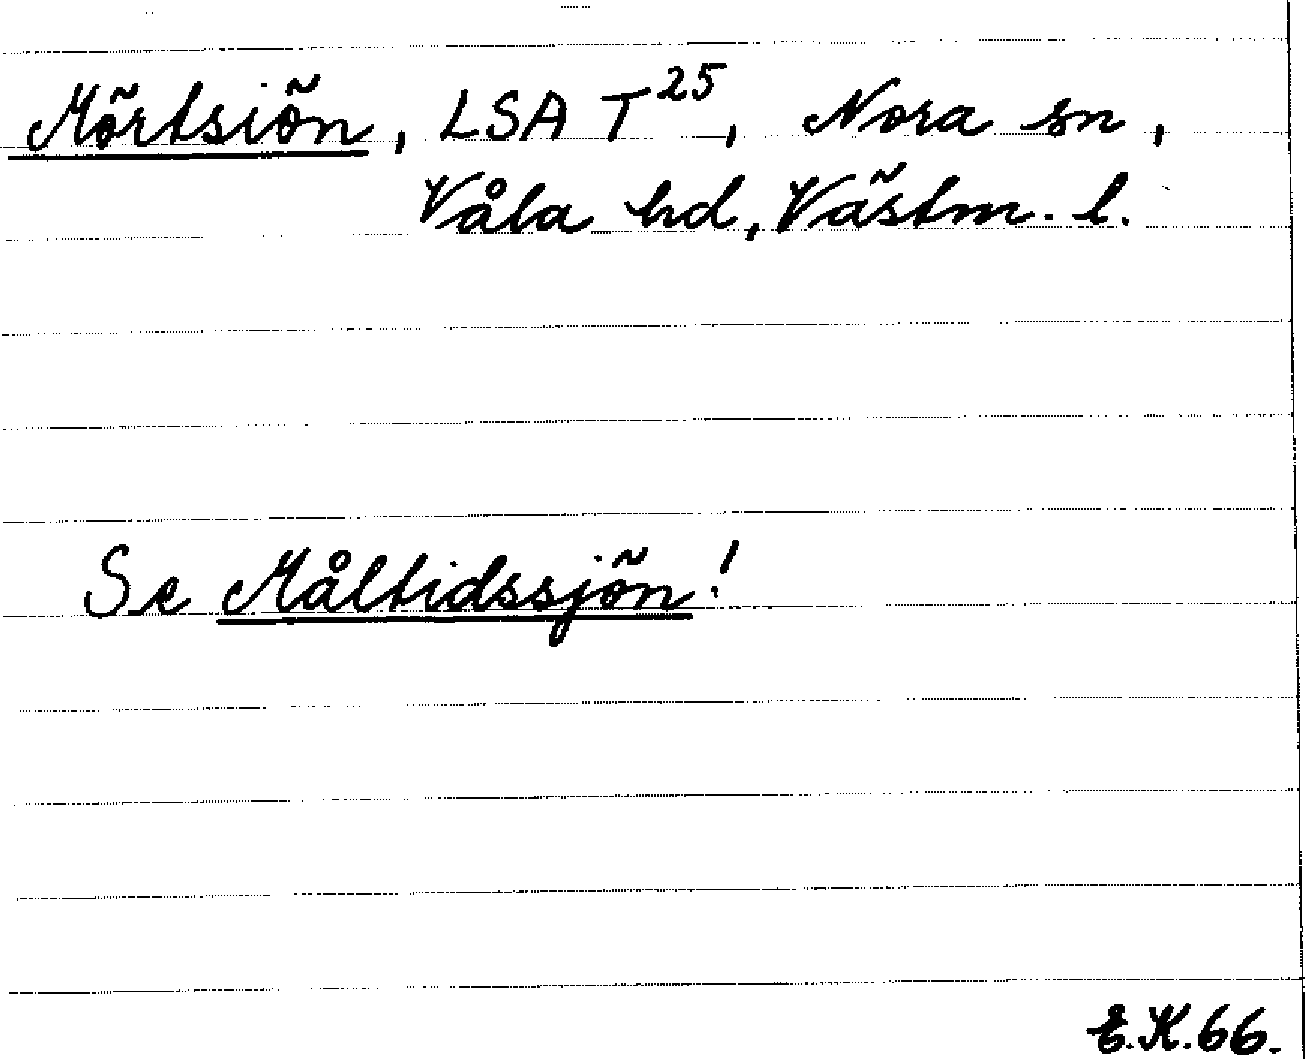 Mörtsiön, LSA T²⁵, Nora sn,
Våla hd, Västm. l.
Se Måltidssjön!
E.K.66.